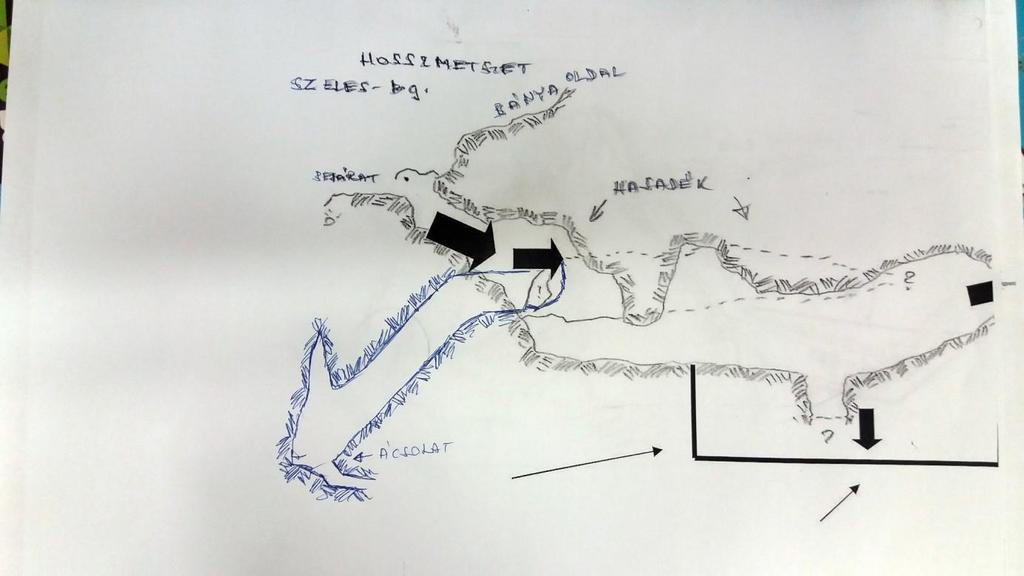 HOSSZMETSZET
SZELES-bg.
BÁNYA OLDAL
BEJÁRAT
HASADÉK
?
ÁCSOLAT
?